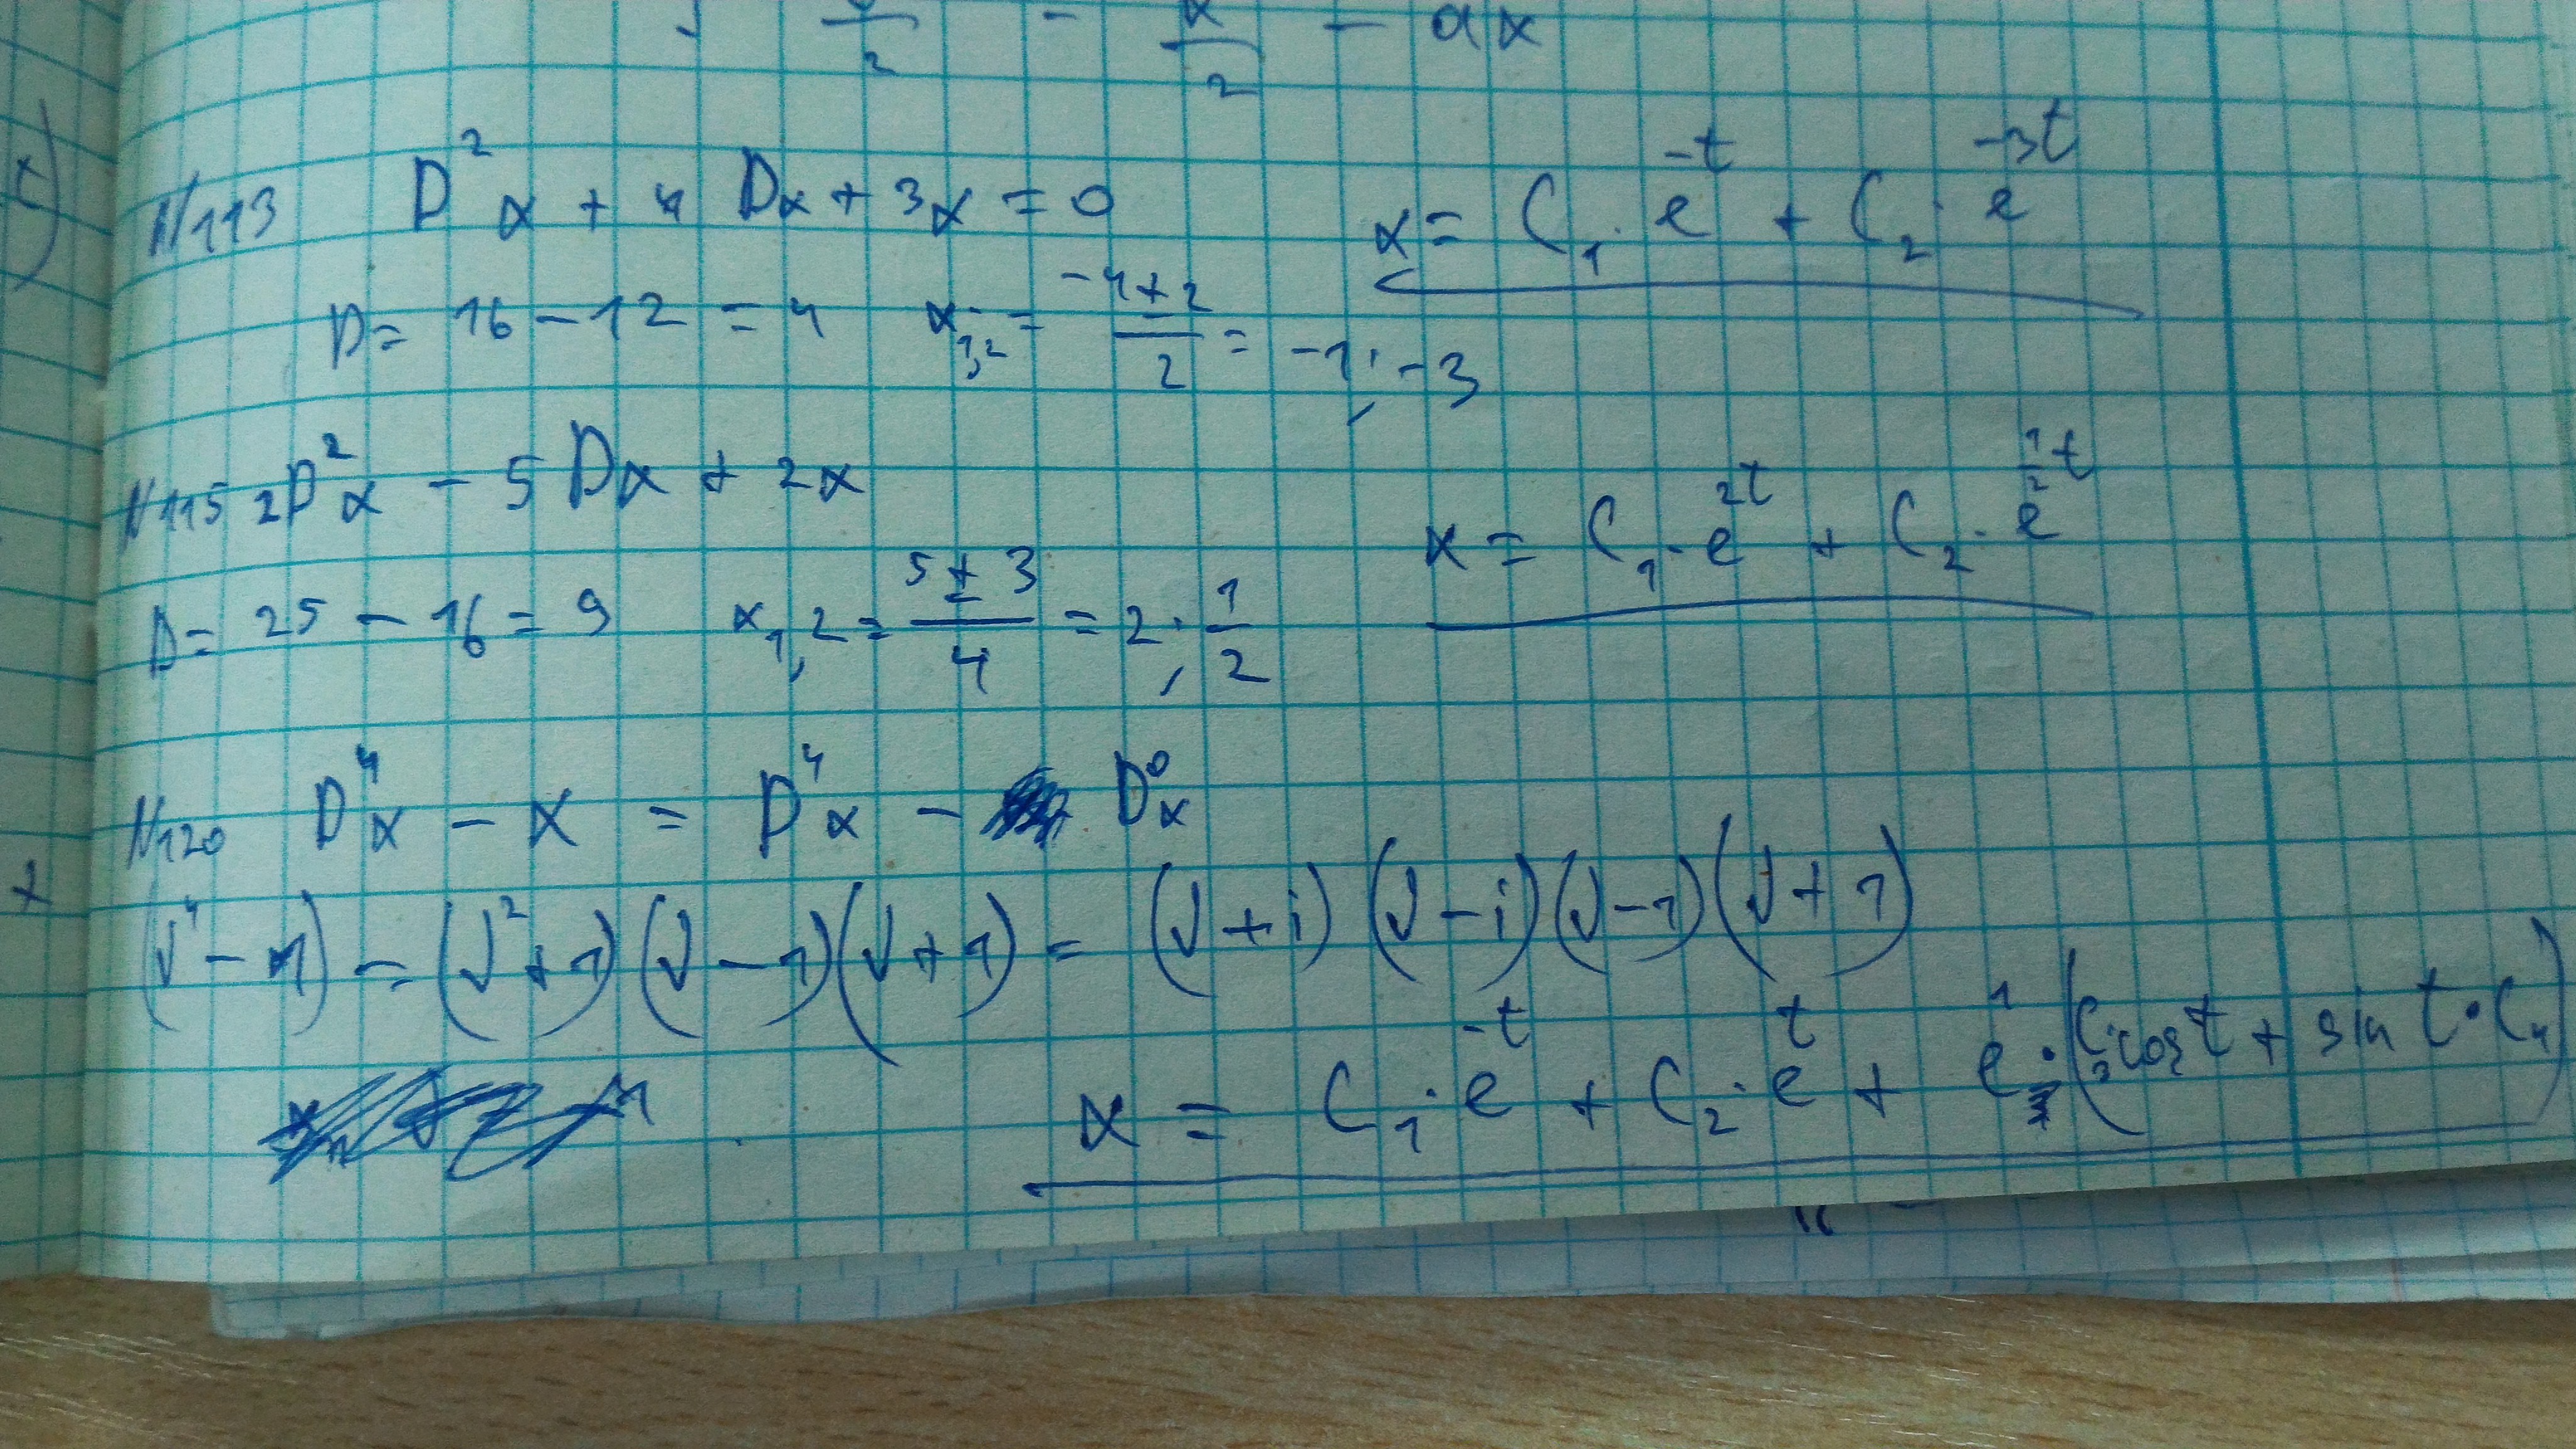 N113 D²x + 4Dx + 3x = 0 x = C₁·e^{-t} + C₂·e^{-3t}
D = 16 - 12 = 4 x₁,₂ = (-4±2)/2 = -1; -3
N115 2D²x - 5Dx + 2x x = C₁·e^{2t} + C₂·e^{½t}
D = 25 - 16 = 9 x₁,₂ = (5±3)/4 = 2; 1/2
N120 D⁴x - x = D⁴x - D⁰x
(λ⁴ - 1) = (λ² + 1)(λ - 1)(λ + 1) = (λ + i)(λ - i)(λ - 1)(λ + 1)
x = C₁·e^{-t} + C₂·e^{t} + e^{1}·(C₃·cos t + sin t·C₄)